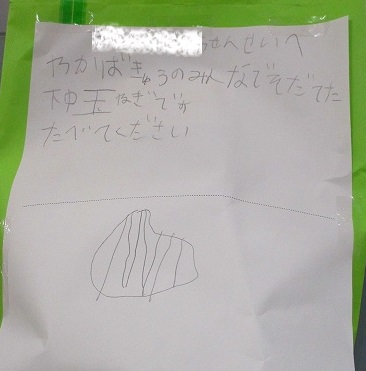 せんせいへ
わかばきゅうのみんなでそだてた
玉ねぎです
たべてください